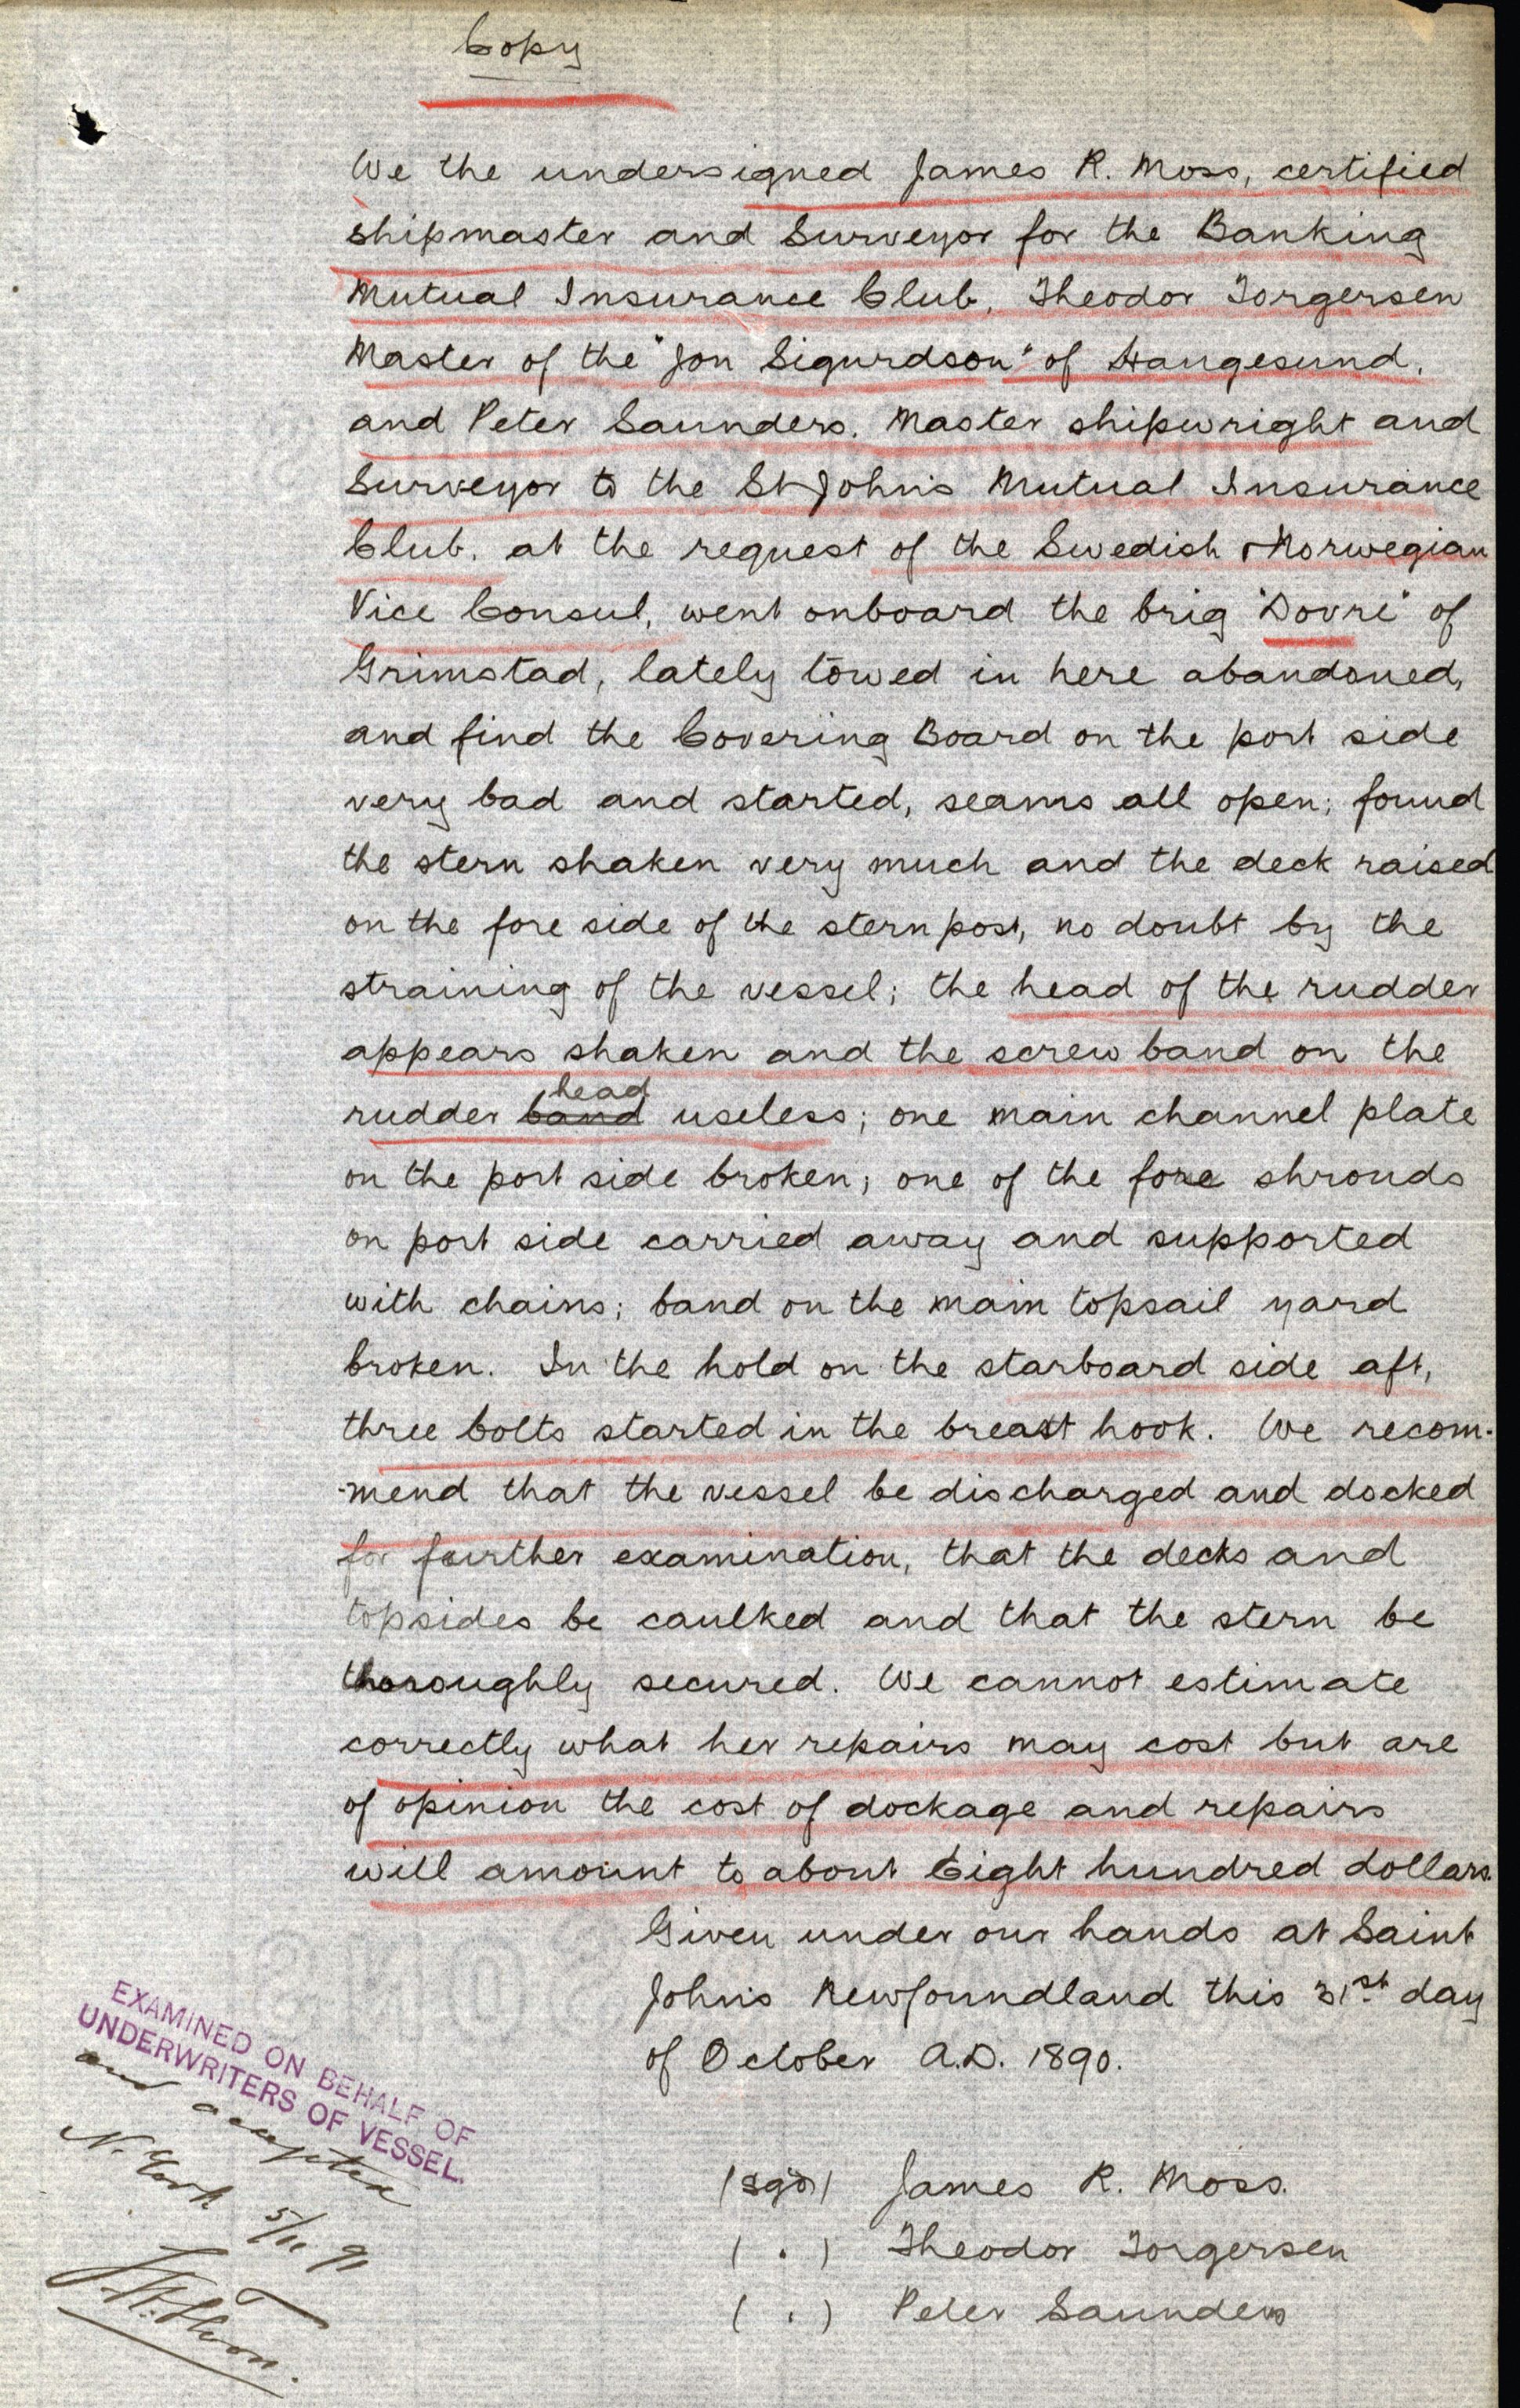 Copy
We the undersigned James R. Moss, certified
shipmaster and Surveyor for the Banking
Mutual Insurance Club, Theodor Torgersen
Master of the "Jon Sigurdson" of Haugesund,
and Peter Saunders, Master shipwright and
Surveyor to the St John's Mutual Insurance
Club, at the request of the Swedish & Norwegian
Vice Consul, went onboard the brig "Dovre" of
Grimstad, lately towed in here abandoned,
and find the Covering Board on the port side
very bad and started, seams all open; found
the stern shaken very much and the deck raised
on the fore side of the stern post, no doubt by the
straining of the vessel; the head of the rudder
appears shaken and the screw band on the
rudder band head useless; one main channel plate
on the port side broken; one of the fore shrouds
on port side carried away and supported
with chains; band on the main topsail yard
broken. In the hold on the starboard side aft,
three bolts started in the breast hook. We recom-
-mend that the vessel be discharged and docked
for further examination, that the decks and
topsides be caulked and that the stern be
thoroughly secured. We cannot estimate
correctly what her repairs may cost but are
of opinion the cost of dockage and repairs
will amount to about Eight hundred dollars.
Given under our hands at Saint
John's Newfoundland this 31st day
of October A.D. 1890.
(sgd) James R. Moss.
( . ) Theodor Torgersen
( . ) Peter Saunders
EXAMINED ON BEHALF OF
UNDERWRITERS OF VESSEL.
and accepted
N. York 5/11 91